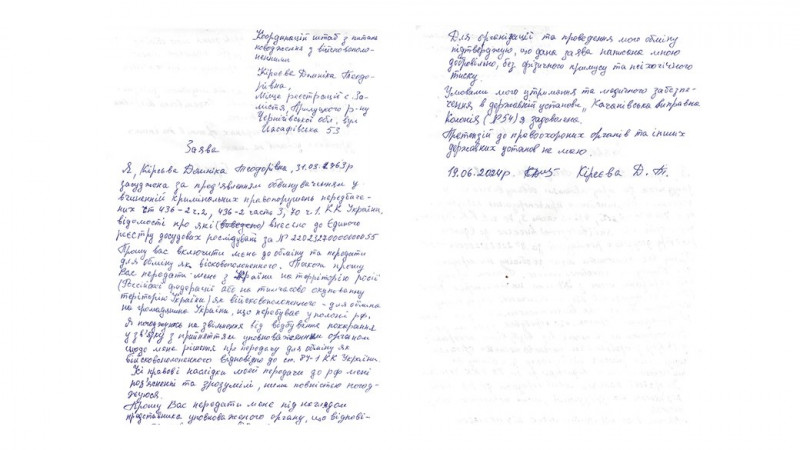 Координацій штаб з питань
поводження з військовополо-
ненними
Кірєєва Домніка Теодо-
рівна,
Місце реєстрації с. За-
містя, Прилуцкого р-ну
Чернігівської обл, вул
53
Заява
Я, Кірєєва Домніка Теодорівна, 31.05.1963р
засуджена за пред'явленим обвинуваченням у
вчиненні кримінальних правопорушень передбаче-
них ст 436-2 ч.2, 436-2 часть 3, 70 ч.1. КК України,
відомості про які внесено до Єдиного
реєстру досудових розслідувань за №
Прошу вас включити мене до обміну та передати
для обміну як військовополоненного. Також прошу
Вас передати мене з України на територію росії
(Російської федерації або на тимчасово окуповану
територію України) як військовополоненого - для обміна
на громадянина України, що перебуває у полоні рф.
Я погоджуюсь на звільнення від відбування покарання
у зв'язку з прийняттям уповноваженим органом
щодо мене рішення про передачу для обміну як
військовополоненного відповідно до ст. 84-1 КК України.
Усі правові наслідки моєї передачи до рф мені
роз'яснені та зрозумілі, ними повністю погод-
жуюся.
Прошу Вас передати мене під наглядом
представника уповноваженого органу, що відпові-
Для організації та проведення мого обміну
підтверджую, що дана заява написана мною
добровільно, без фізичного примусу та психогічного
тиску.
Умовами мого утримання та медичного забезпе-
чення в державній установа „Качанівська виправна
колонія (№54) я задоволена.
Претензій до правоохороних органів та інших
державних установ не маю.
19.06.2024р. Кірєєва Д. Т.